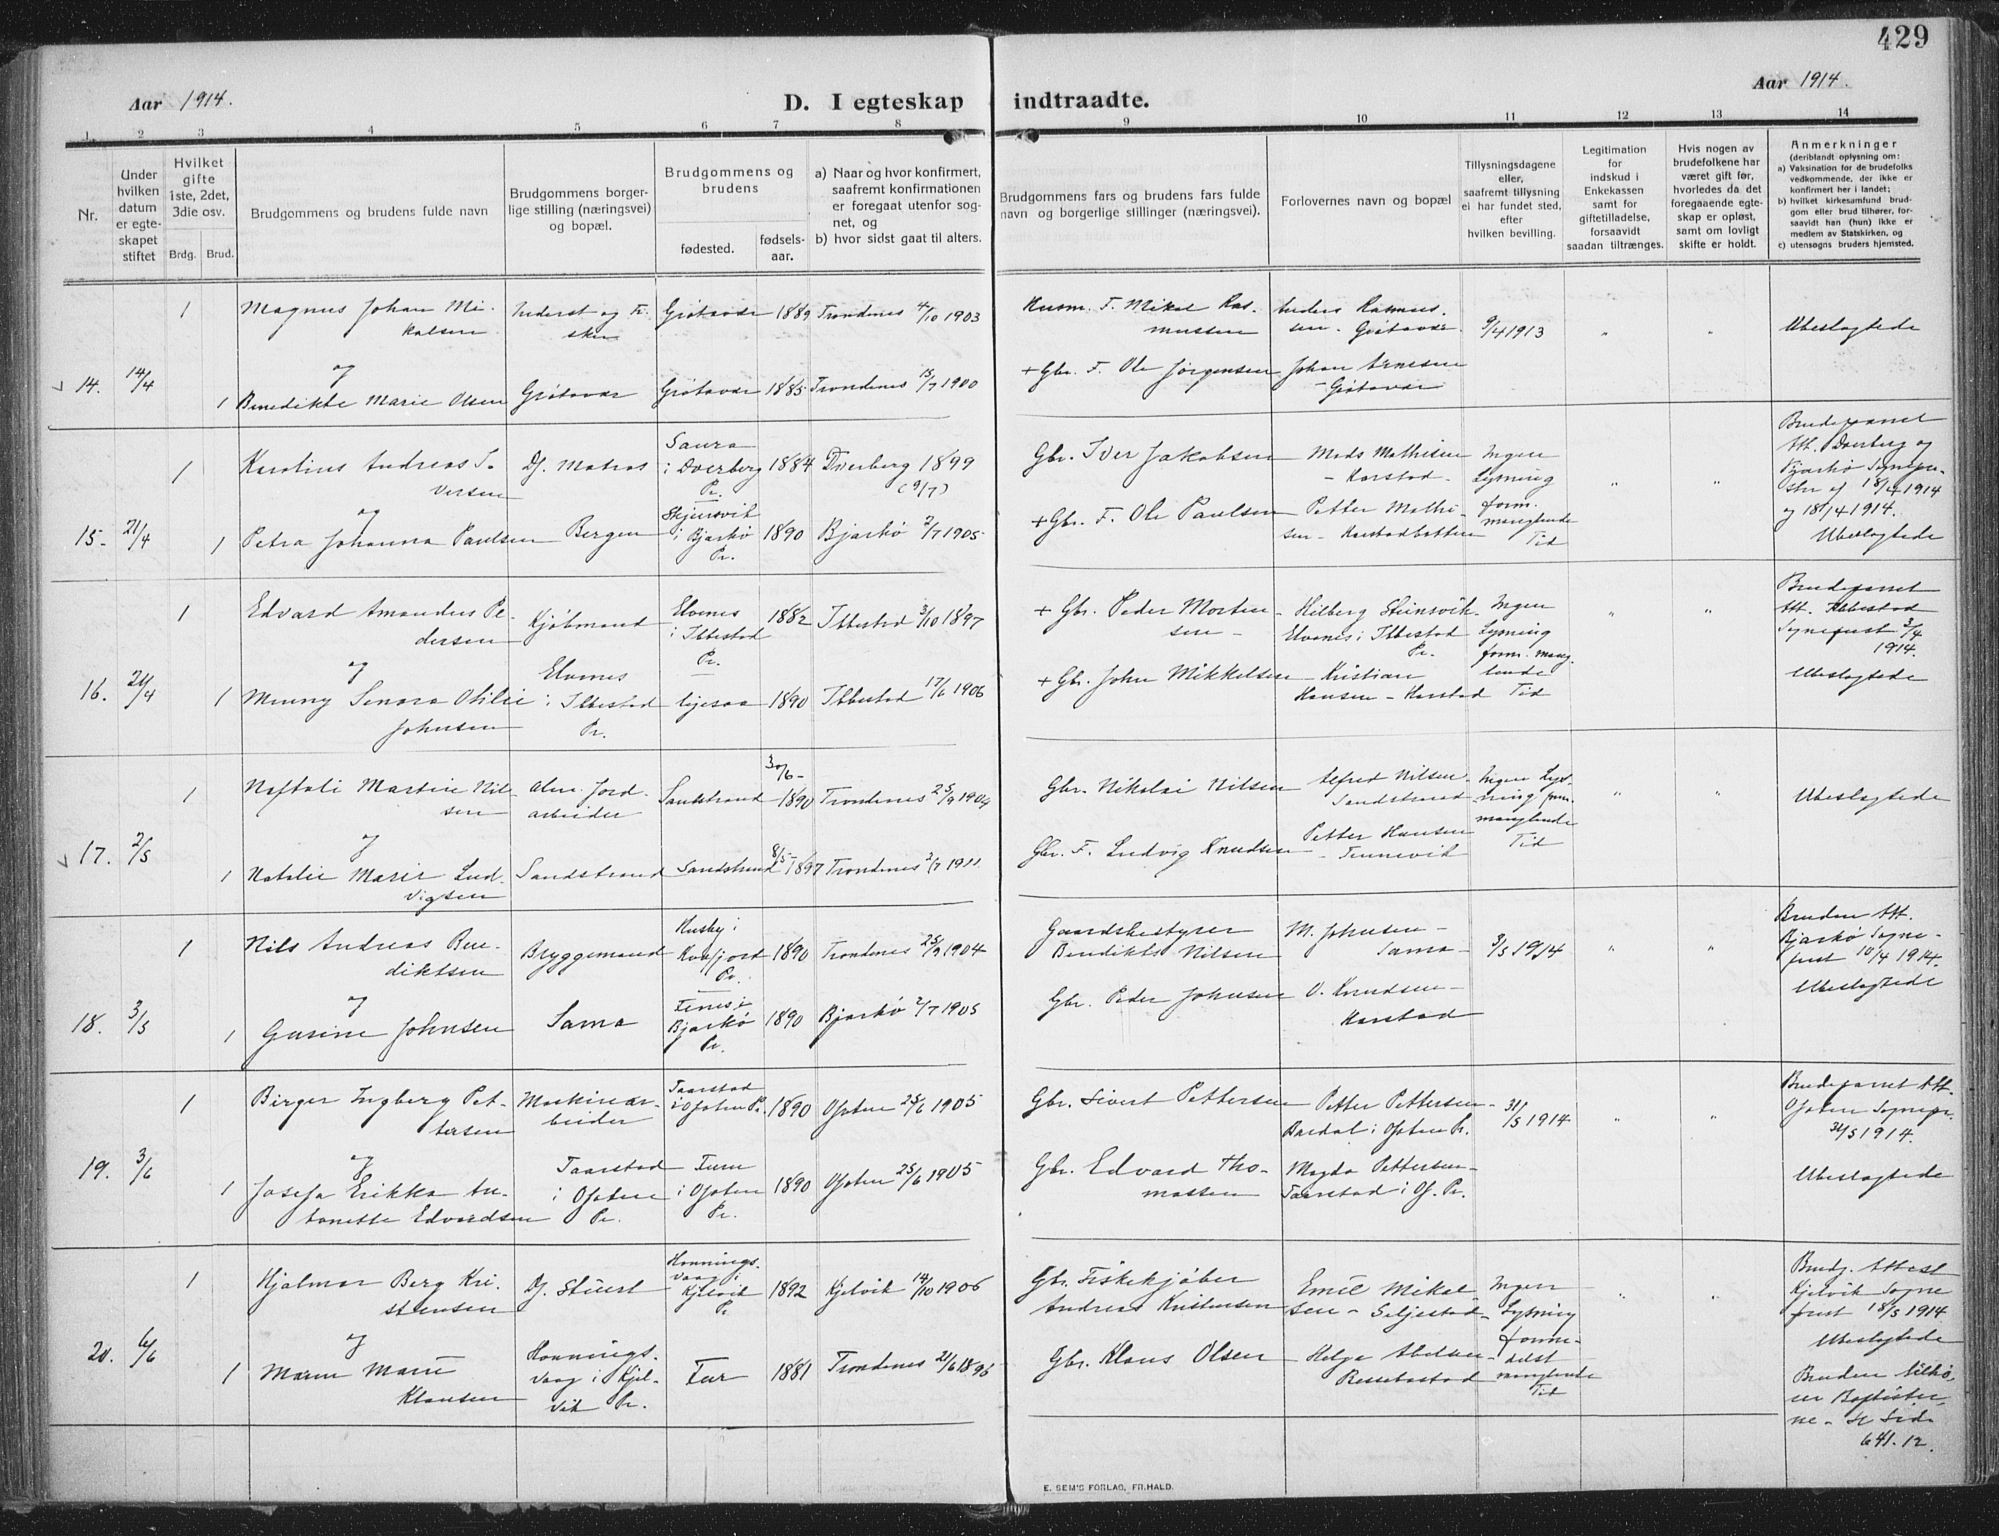 429
Aar 1914.
D. I egteskap indtraadte.
Aar 1914.
1. 2 3 4 5 6 7 8 9 10 11 12 13 14
Nr.
Under hvilken datum er egteskapet stiftet
Hvilket gifte 1ste, 2det, 3die osv.
Brdg. Brud.
Brudgommens og brudens fulde navn
Brudgommens borgerlige stilling (næringsvei) og bopæl.
Brudgommens og brudens
fødested.
fødselsaar.
a) Naar og hvor konfirmert, saafremt konfirmationen er foregaat utenfor sognet, og
b) hvor sidst gaat til alters.
Brudgommens fars og brudens fars fulde navn og borgerlige stillinger (næringsvei).
Forlovernes navn og bopæl
Tillysningsdagene eller, saafremt tillysning ei har fundet sted, efter hvilken bevilling.
Legitimation for indskud i Enkekassen samt for giftetilladelse, forsaavidt saadan tiltrænges.
Hvis nogen av brudefolkene har været gift før, hvorledes da det foregaaende egteskap er opløst, samt om lovligt skifte er holdt.
Anmerkninger
(deriblandt oplysning om:
a) Vaksination for de brudefolks vedkommende, der ikke er konfirmert her i landet;
b) hvilket kirkesamfund brudgom eller brud tilhører, forsaavidt han (hun) ikke er medlem av Statskirken, og
c) utensogns bruders hjemsted.
14. 14/4
1 Magnus Johan Mikalsen
Inderst og Fisker
Grötavær 1889 Trondenes 4/10 1903
Husm. F. Mikal Rasmussen
Anders Rasmussen - Grötavær
9/4 1913 " "
Ubeslegtede
og
1 Benedikte Marie Olsen
Grötavær
Grötavær 1885 Trondenes 15/7 1900
+ Gbr. F. Ole Jörgensen
Johan Arnesen - Grötavær
15. 21/4
1 Karolius Andreas Iversen
Df. Matros
Saura i Dverberg Pr. 1884 Dverberg 1899 (9/7)
Gbr. Iver Jakobsen
Mads Mathisen - Harstad.
Ingen Lysning form. manglende Tid
" "
Brudeparret Att. Dverberg og Bjarkö Sognepr. 18/4 1914 og 18/4 1914.
Ubeslegtede
og
1 Petra Johanna Paulsen
Bergen
i Bjarkö Pr. 1890 Bjarkö 2/7 1905
+ Gbr. F. Ole Paulsen
Petter Mathisen - Harstadbotten
16. 21/4
1 Edvard Amandus Pedersen
Kjöbmand
Elvenes i Ibbestad Pr. 1882 Ibbestad 3/10 1897
+ Gbr. Peder Mortensen -
Hilberg Steinsvik - Elvenes i Ibbestad Pr.
Ingen Lysning form. manglende Tid
" "
Brudeparret Att. Ibbestad Sogneprest 3/4 1914.
Ubeslegtede
og
1 Minny Senora Otilie Johnsen
Elvenes i Ibbestad Pr.
ligesaa 1890 Ibbestad 17/6 1906
+ Gbr. John Mikkelsen
Kristian Hansen - Harstad
17. 2/5
1 Naftali Martin Nilsen
alm. Jordarbeider
Sandstrand 30/6 - 1890 Trondenes 25/9 1904
Gbr. Nikolai Nilsen
Alfred Nilsen - Sandstrand
Ingen Lysning form. manglende Tid
" "
Ubeslegtede
og
1 Natalie Marie Ludvigsen
Sandstrand
Sandstrand 8/5 1897 Trondenes 2/7 1911
Gbr. F. Ludvig Knudsen
Petter Hansen - Tennevik
18. 3/5
1 Nils Andreas Benediktsen
Bryggemand
Husby i Kvæfjord Pr. 1890 Trondenes 25/9 1904
Gaardsbestyrer Benedikt Nilsen
M. Johnsen - Sama -
3/5 1914 " "
Bruden Att. Bjarkö Sogneprest 10/4 1914.
Ubeslegtede
og
1 Gusine Johnsen
Sama
i Bjarkö Pr. 1890 Bjarkö 2/7 1905
Gbr. Peder Johnsen
O. Knudsen - Harstad
19. 3/6
1 Birger Ingberg Pettersen
Maskinarbeider
Taarstad i Ofoten Pr. 1890 Ofoten 25/6 1905
Gbr. Sivert Pettersen
Petter Pettersen - i Ofoten Pr.
31/5 1914 " "
Brudeparret Att. Ofoten Sognepr. 31/5 1914.
Ubeslegtede
og
1 Josefa Erikka Antonette Edvardsen
Taarstad i Ofoten Pr.
i Ofoten Pr. 1890 Ofoten 25/6 1905
Gbr. Edvard Thomassen
Magda Pettersen - Taarstad i Of. Pr.
20. 6/6
1 Hjalmar Berg Kristensen
Df. Stuert
Honningsvaag i Kjelvik Pr. 1892 Kjelvik 14/10 1906
Gbr. Fiskekjöber Andreas Kristensen
Emil Mikalsen - Seljestad -
Ingen Lysning formedelst manglende Tid
" "
Brudg. Attest Kjelvik Sogneprest 18/5 1914
Ubeslegtede
Bruden tilhörer Baptisterne - Se Side 641.12.
og
1 Maren Marie Klausen
Honningsvaag i Kjelvik Pr.
1881 Trondenes 21/6 1896
Gbr. Klaus Olsen
Helga Abelsen -
E. SEM'S FORLAG, FR.HALD.